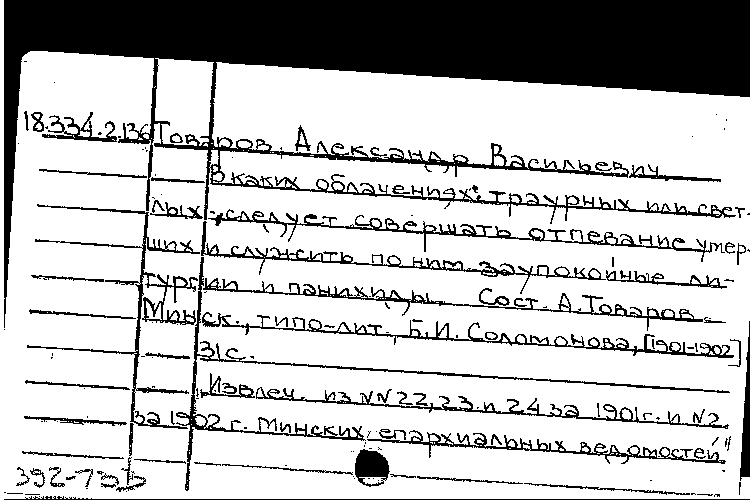 18.334.2.136 Товаров, Александр Васильевич.
В каких облачениях: траурных или свет-
лых, следует совершать отпевание умер-
ших и служить по ним заупокойные ли-
тургии и панихиды. Сост. А. Товаров.
Минск, типо-лит. Б.И. Соломонова, [1901-1902]
31с.
„Извлеч. из NN 22, 23 и 24 за 1901г. и N2
за 1902 г. Минских епархиальных ведомостей"